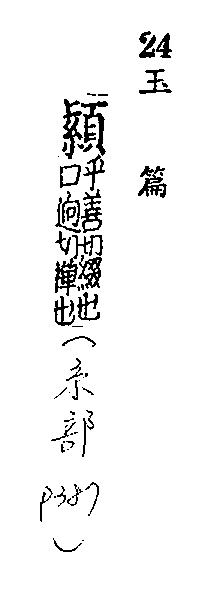 24
玉篇
顈
乎善切綴也
口逈切襌也
(糸部
)